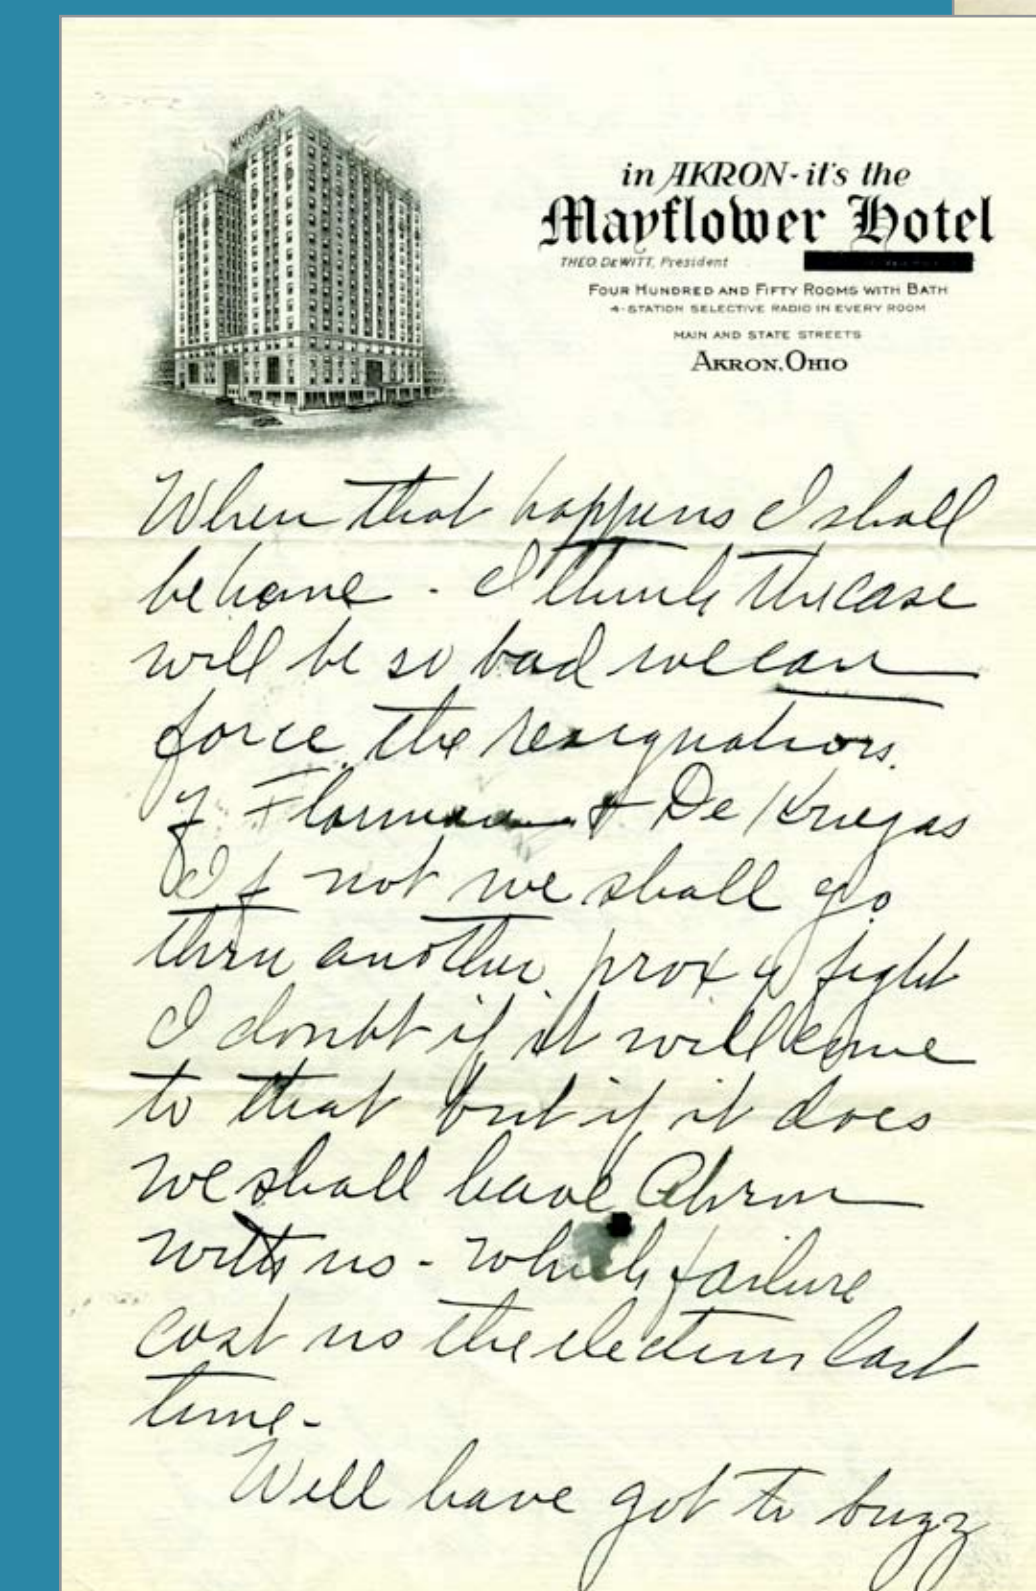 MAYFLOWER
in AKRON - it's the
Mayflower Hotel
THEO. DEWITT, President
FOUR HUNDRED AND FIFTY ROOMS WITH BATH
4-STATION SELECTIVE RADIO IN EVERY ROOM
MAIN AND STATE STREETS
AKRON, OHIO
When that happens I shall
be home - I think the case
will be so bad we can
force the resignations
of & De
If not we shall go
thru another proxy fight
I doubt if it will come
to that but if it does
we shall have Akron
with us - which failure
cost us the election last
time -
Well have got to buzz